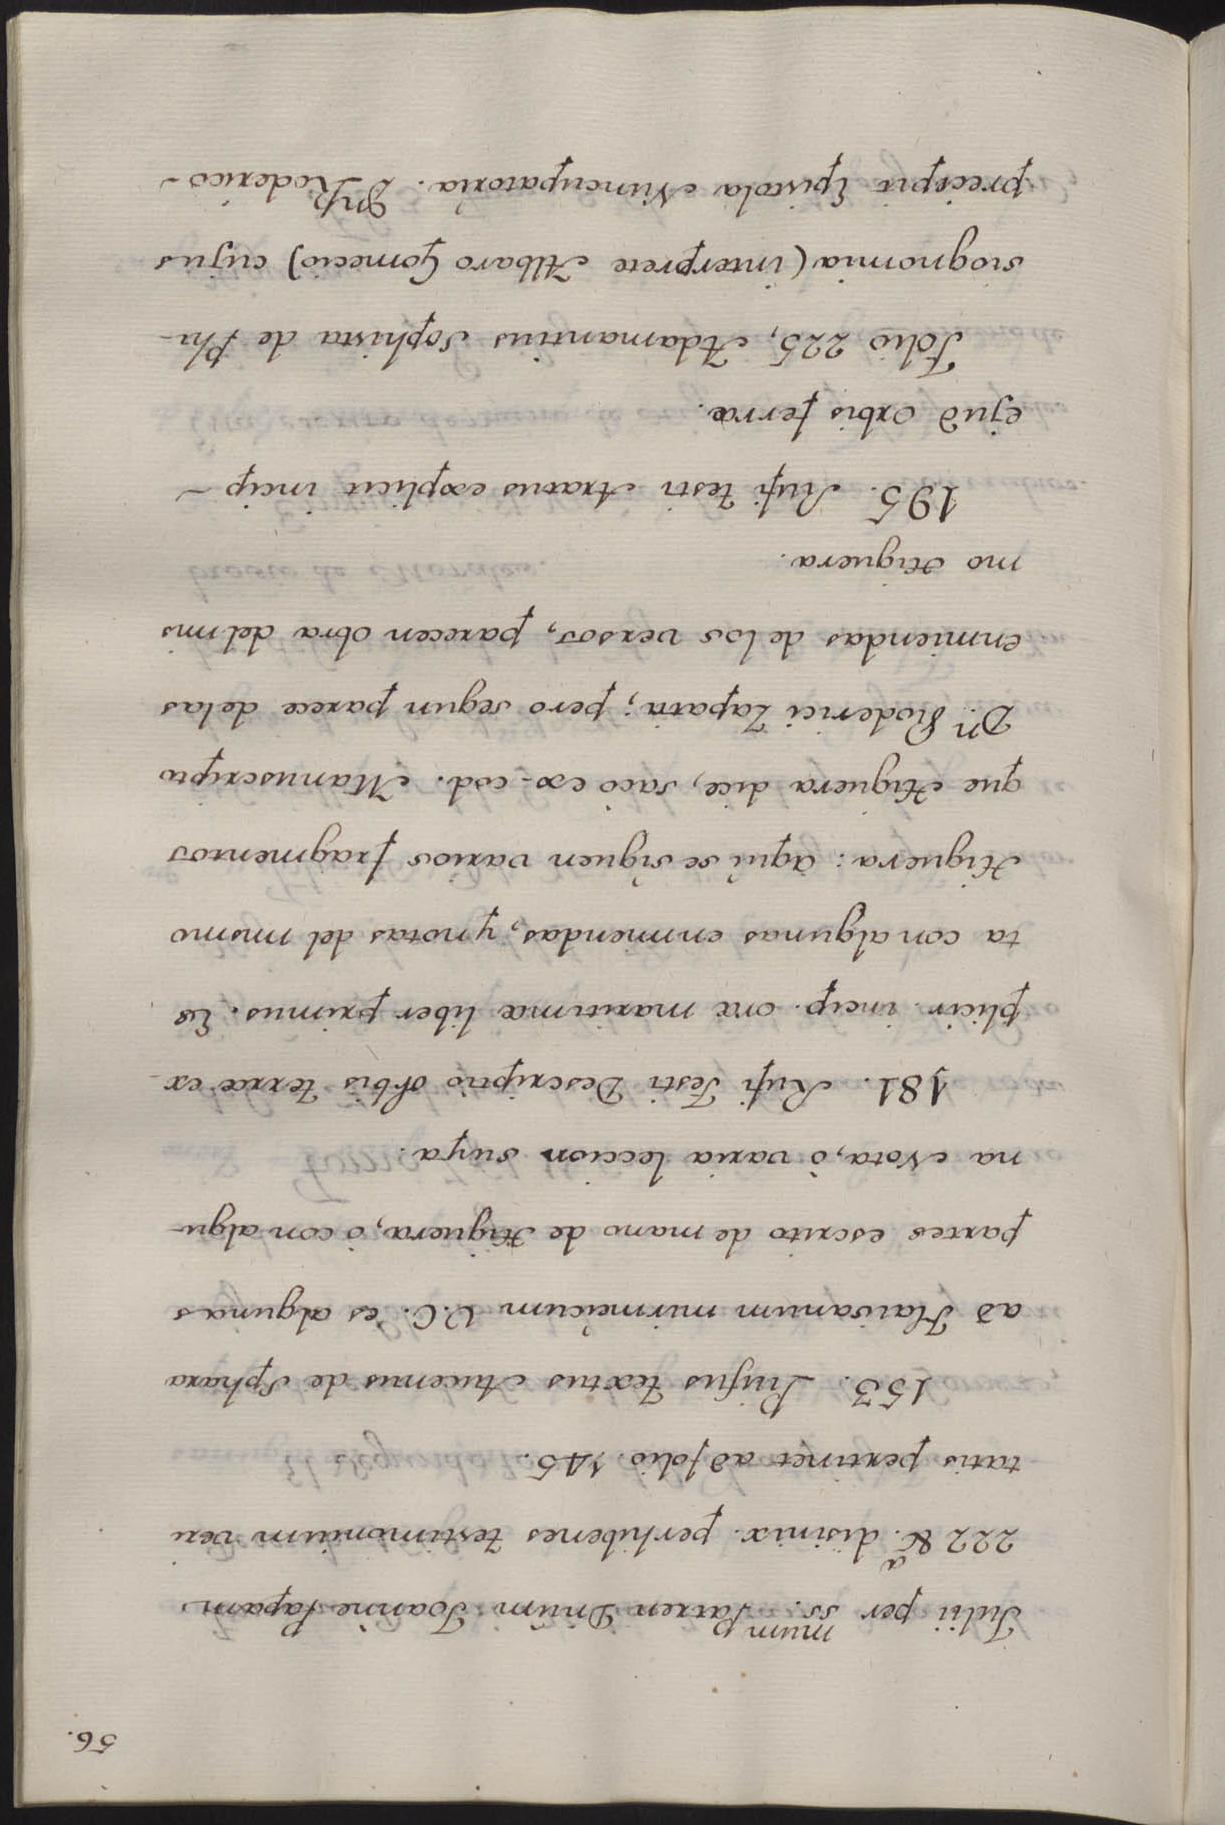 56.
Julii per ss.mum P. Patrem Dnum Joañne Papam
222 &ã disimix. perhibenes testimonium veri
tatis pertinet ad folio. 145.
153. Rufus textus Avienus de Sphara
ad Flavianum mirmeicum V.C. es algunas
partes escrito de mano de Higuera, ò con algu-
na Nota, ò varia leccion suya.
181. Rufi Festi Descriptio Orbis terræ ex-
plicit. incip. oræ maritimæ liber primus. Es
ta con algunas enmiendas, y notas del mismo
Higuera: aqui se siguen varios fragmentos
que Higuera dice, sacò ex-cod. Manuscripto
Dn. Roderici Zapata; pero segun parece de las
enmiendas de los versos, parecen obra del mis
mo Higuera.
195. Rufi Festi Aratus explicit incip -
ejud orbis ferræ.
Folio 225, Adamantius Sophista de Phi-
siognomia (interprete Albaro Gomecio) cujus
precepit Epistola Nuncupatoria. D Roderico -